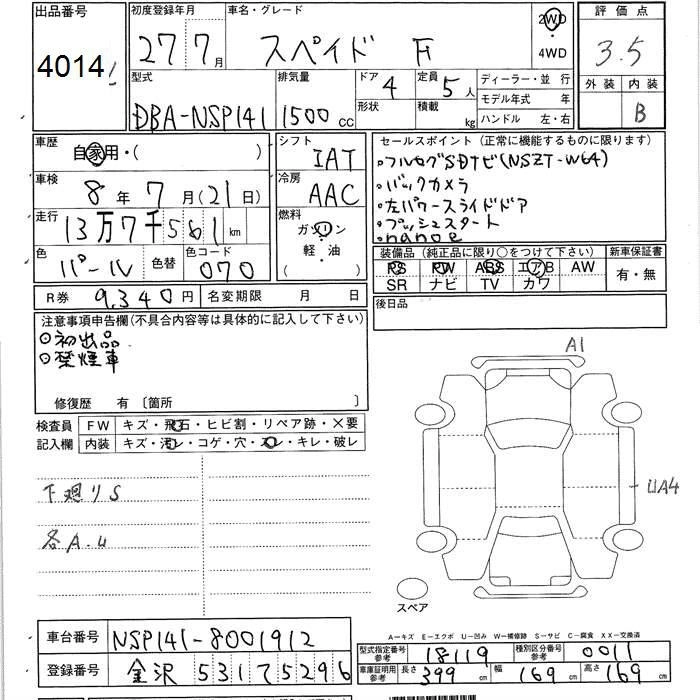 出品番号 初度登録年月 車名・グレード 2WD 評価点
4014 27 7月 スペイド F 4WD 3.5
型式 排気量 ドア 4 定員 5人 ディーラー・並行 外装 内装
DBA-NSP141 1500cc 形状 積載 kg モデル年式 年 B
ハンドル 左・右
車歴 自家用・( ) シフト IAT セールスポイント (正常に機能するものに限ります)
車検 8年 7月(21日) 冷房 AAC
・フルセグSDナビ(NSZT-W64)
・バックカメラ
・左パワースライドドア
・プッシュスタート
・nanoe
走行 13万7千561km 燃料 ガソリン
軽・油
( )
色 パール 色替 色コード 070
装備品 (純正品に限り〇をつけて下さい) 新車保証書
PS PW ABS エアB AW 有・無
SR ナビ TV カワ
R券 9,340円 名変期限 月 日 後日品
注意事項申告欄(不具合内容等は具体的に記入して下さい)
◎初出品
◎禁煙車
修復歴 有 〔箇所
検査員 FW キズ・飛石・ヒビ割・リペア跡・×要
記入欄 内装 キズ・汚レ・コゲ・穴・スレ・キレ・破レ
下廻りS
各A.U
A1
UA4
スペア
A-キズ E-エクボ U-凹み W-補修跡 S-サビ C-腐食 XX-交換済
車台番号 NSP141-8001912
登録番号 金沢 531 て 5296
型式指定番号 参考 18119 種別区分番号 参考 0011
車庫証明用 参考 長さ 399cm 幅 169cm 高さ 169cm